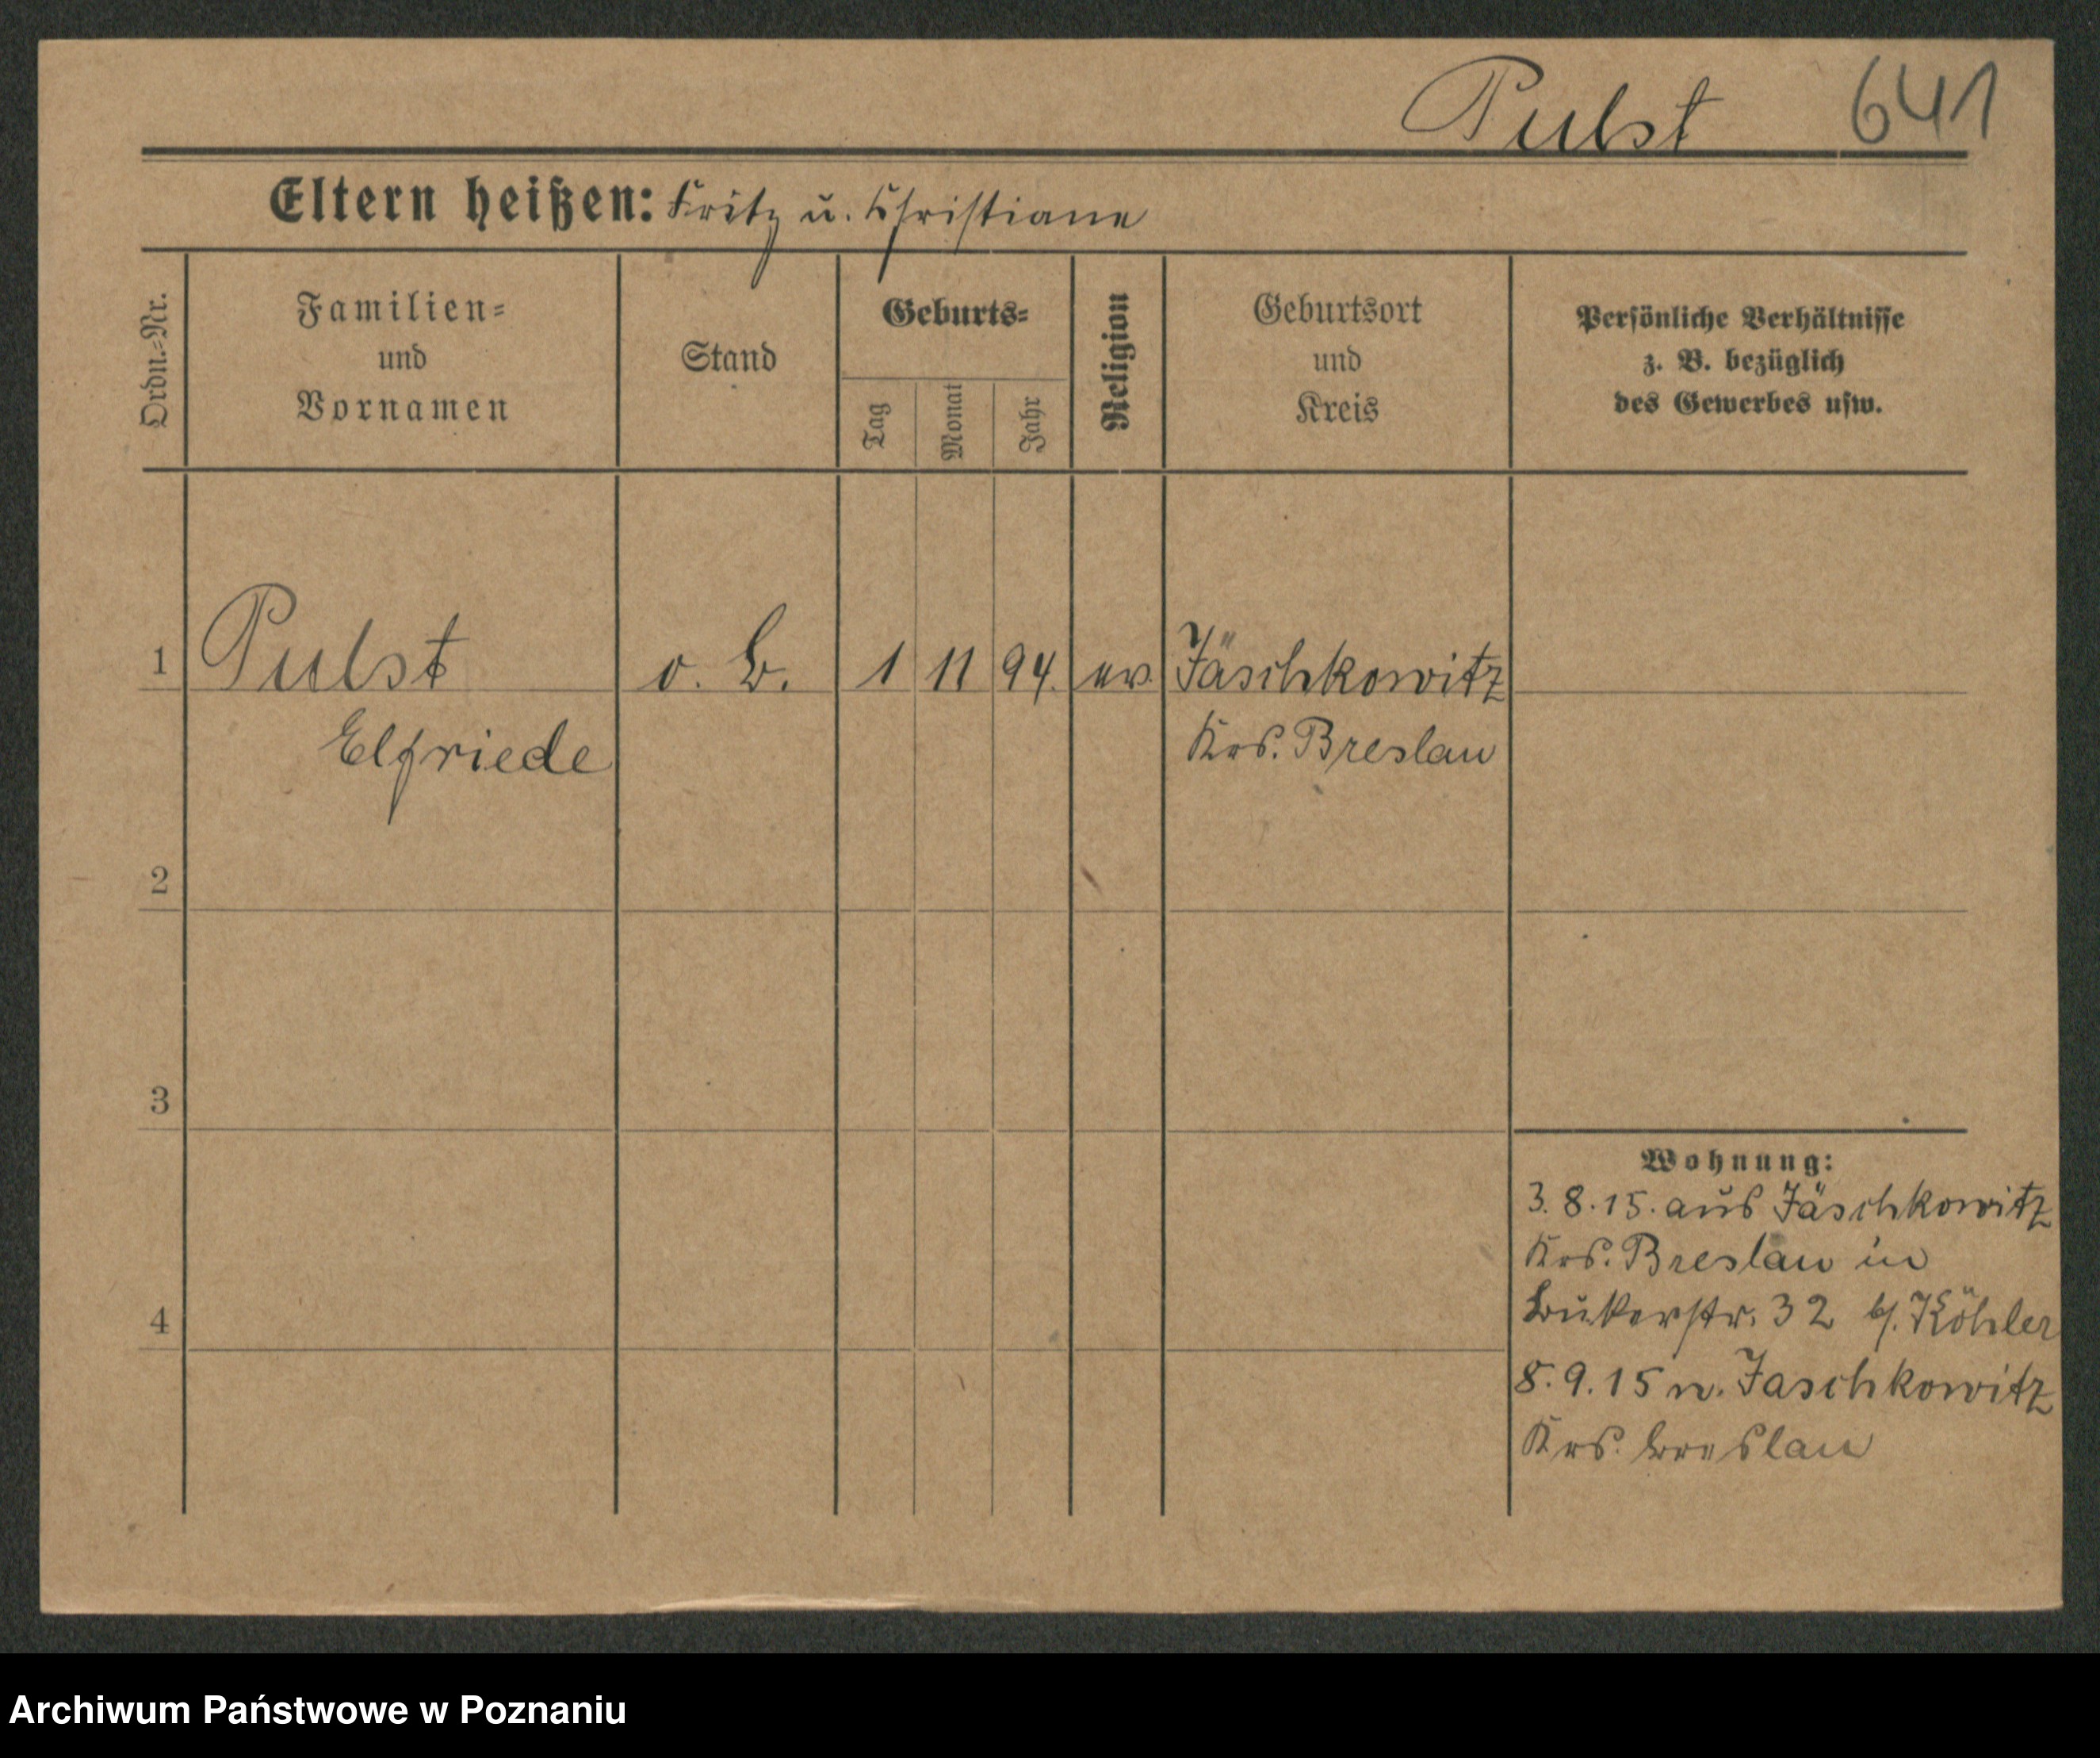 Pulst 641
Eltern heißen: Fritz u. Christiane
Ordn.-Nr.
Familien-
und
Vornamen
Stand
Geburts-
Tag
Monat
Jahr
Religion
Geburtsort
und
Kreis
Persönliche Verhältnisse
z. B. bezüglich
des Gewerbes usw.
1 Pulst o. B. 1 11 94. ev. Jäschkowitz
Elfriede Krs. Breslau
2
3
4
Wohnung:
3.8.15. aus Jäschkowitz
Krs. Breslau in
Bukerstr. 32 b/. Köhler
8.9.15 n. Jaschkowitz
Krs. Breslau
Archiwum Państwowe w Poznaniu